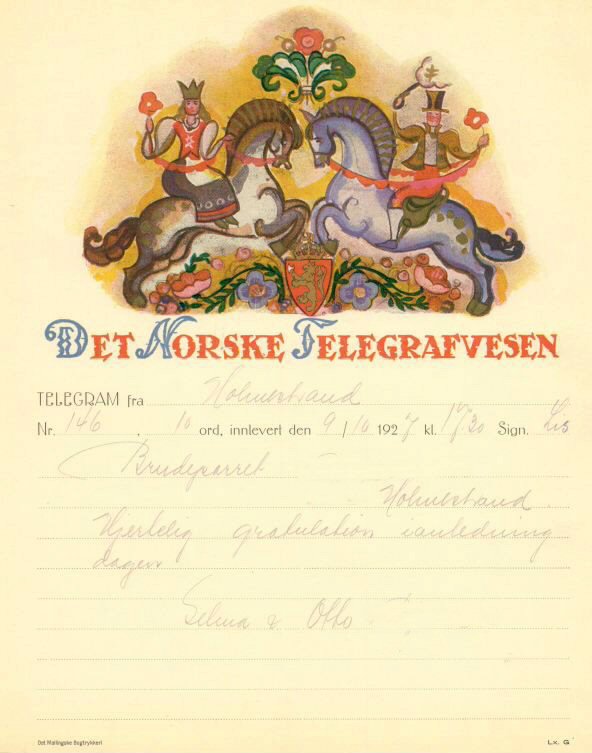 DET NORSKE TELEGRAFVESEN
TELEGRAM fra Holmestrand
Nr. 146 . 10 ord, innlevert den 9/10 1927 kl. 1730 Sign. Lis
Brudeparret
Holmestrand.
Hjertelig gratulation ianledning
dagen
Selma & Otto
Det Mallingske Bogtrykkeri
Lx. G